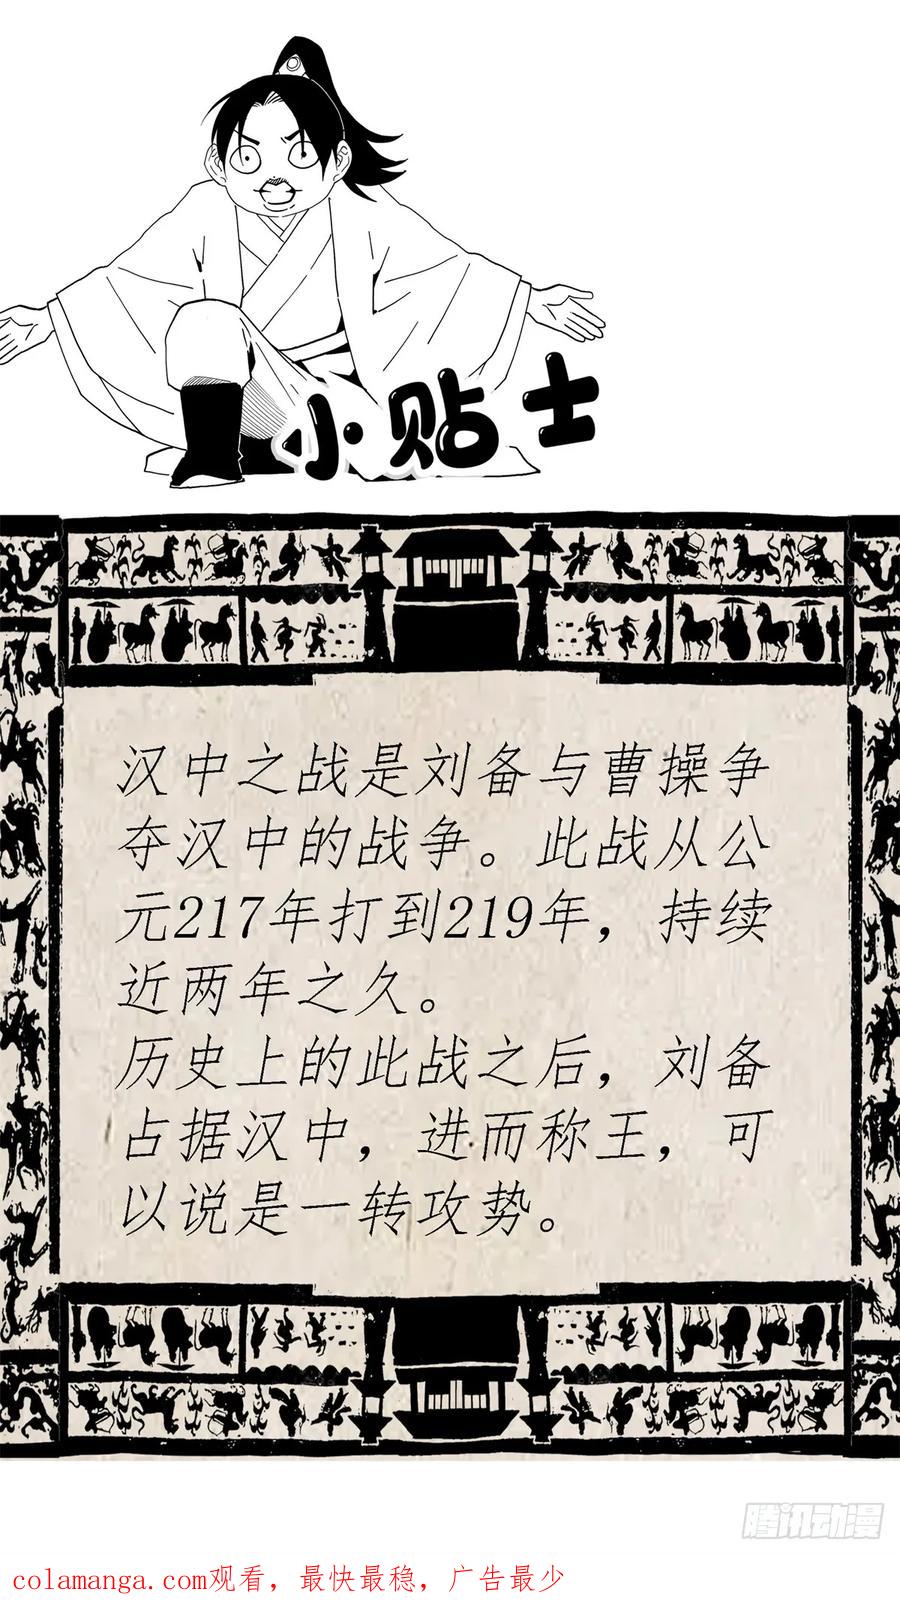 小贴士
汉中之战是刘备与曹操争
夺汉中的战争。此战从公
元217年打到219年，持续
近两年之久。
历史上的此战之后，刘备
占据汉中，进而称王，可
以说是一转攻势。
腾讯动漫
colamanga.com观看，最快最稳，广告最少